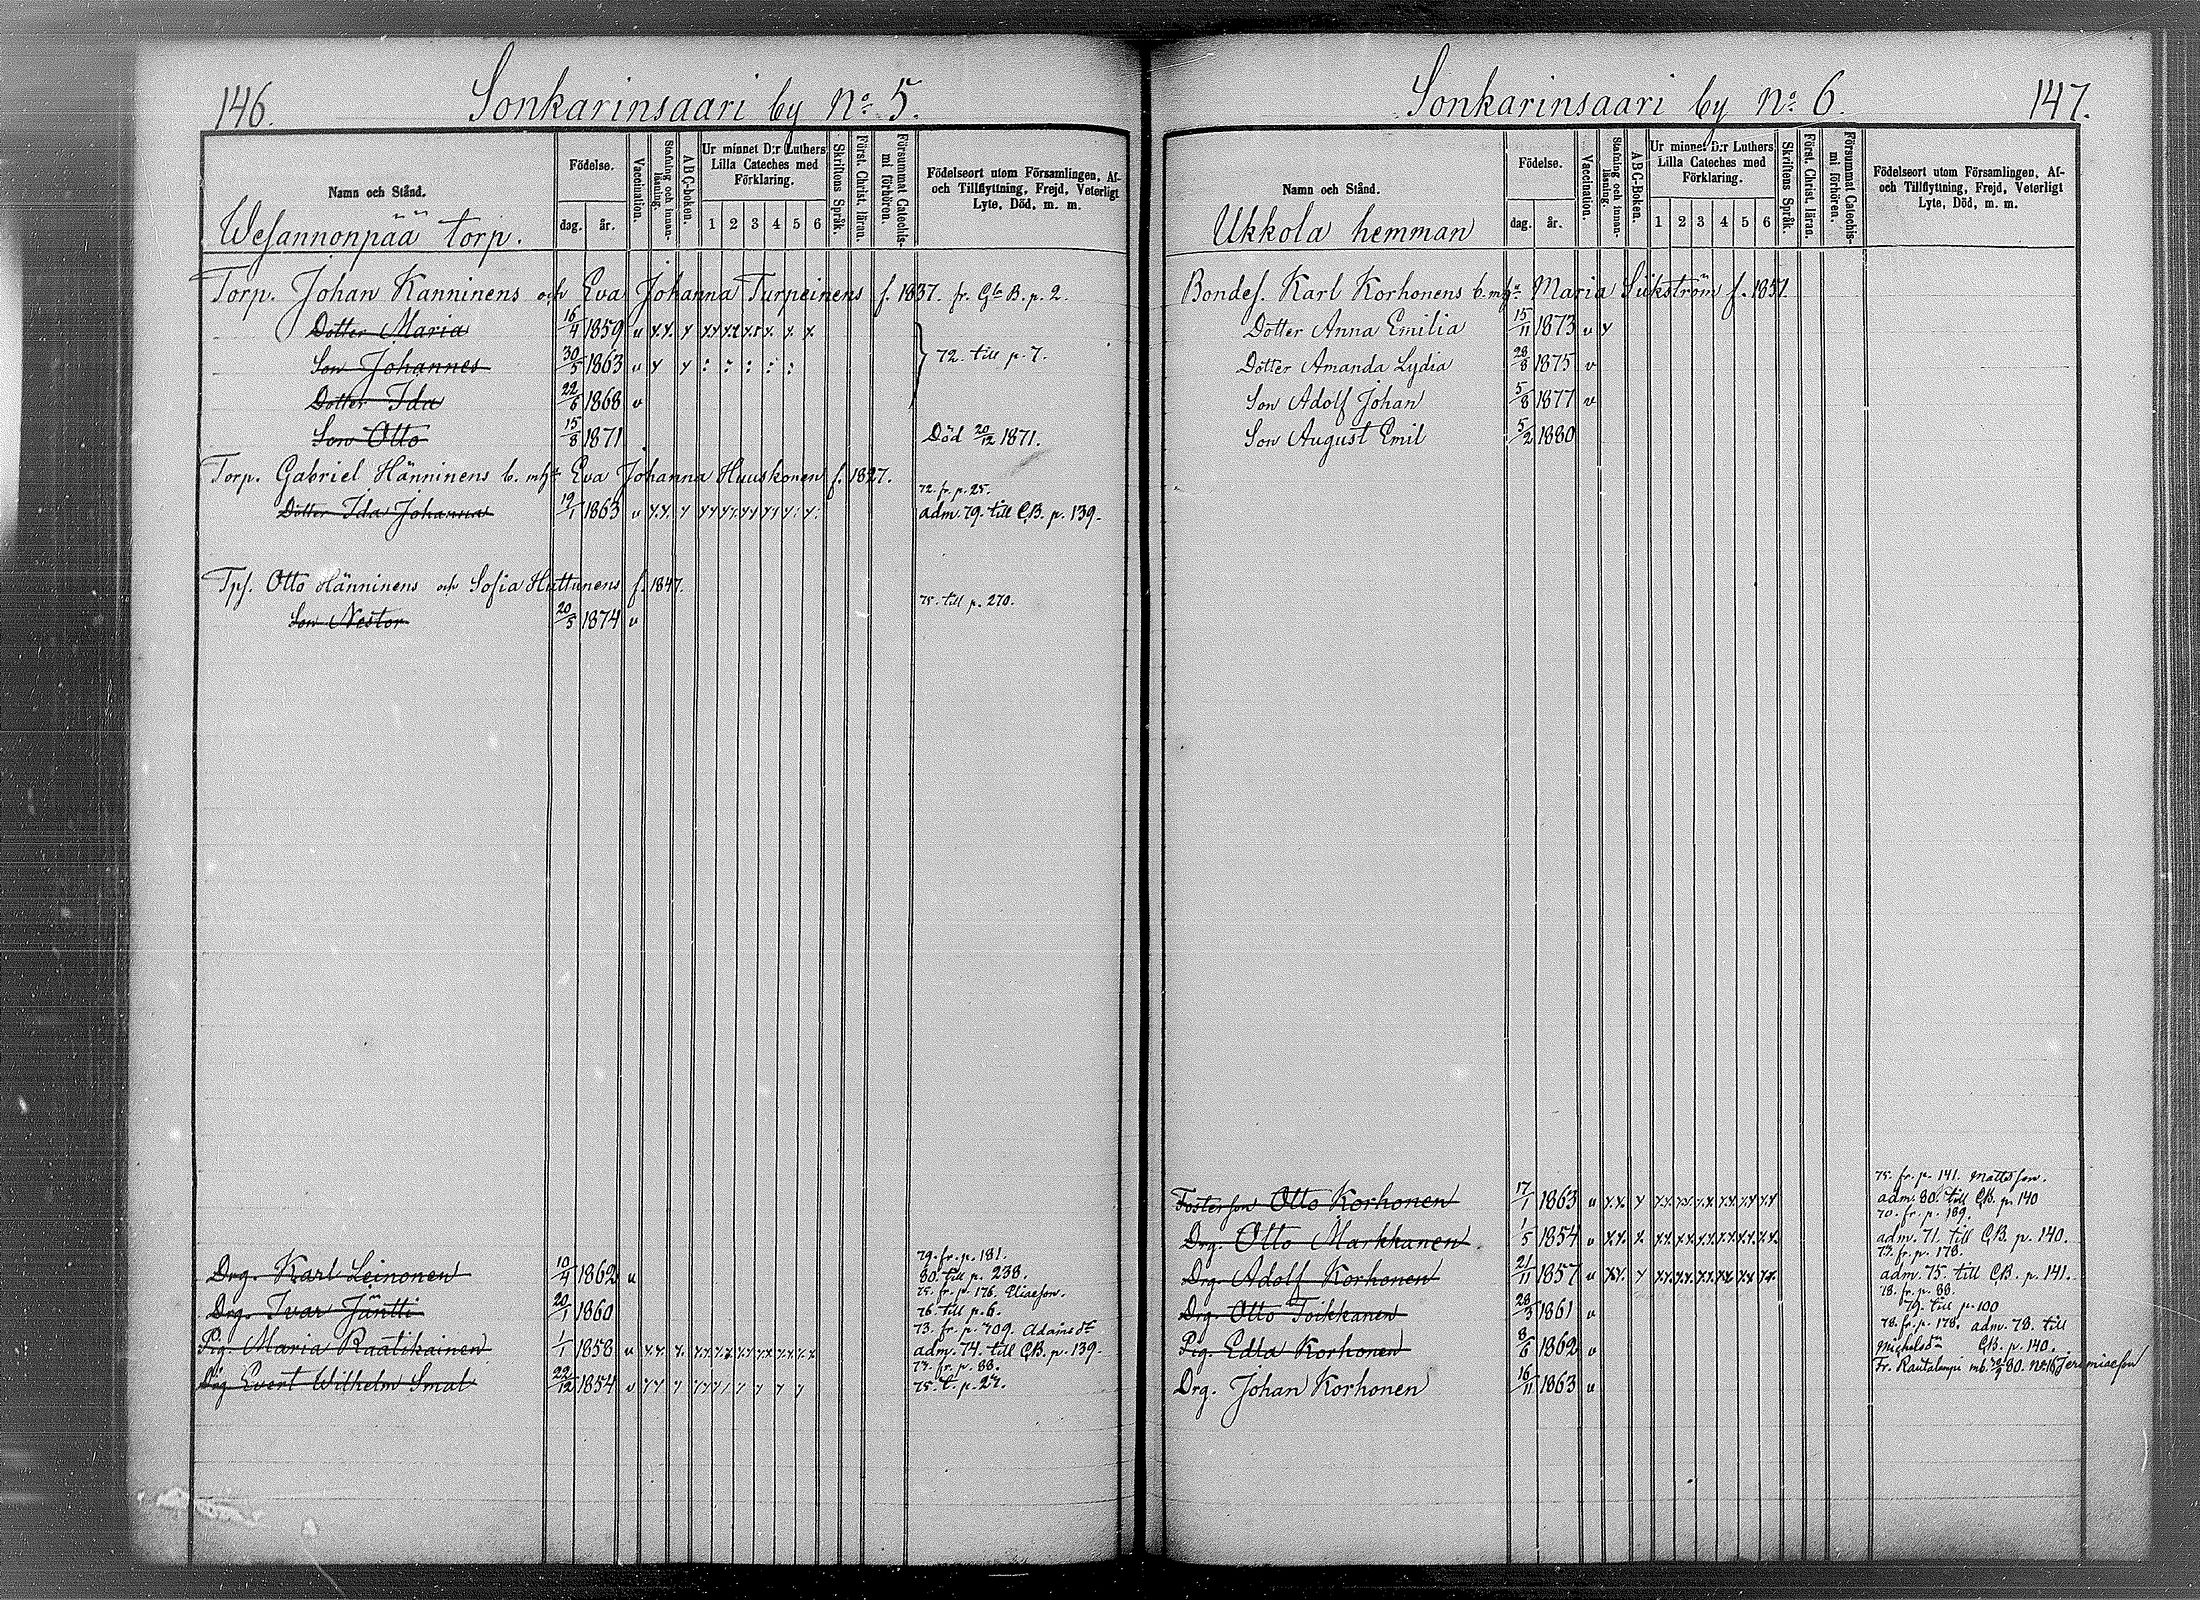 146.
Sonkarinsaari by No 5.
Namn och Stånd.
Födelse.
dag.
år.
Vaccination.
Stafning och innan-läsning.
A B C-boken.
Ur minnet D:r Luthers Lilla Cateches med Förklaring.
1 2 3 4 5 6
Skriftens Språk.
Först. Christ. läran.
Försummat Catechis-mi förhören.
Födelseort utom Församlingen, Af- och Tillflyttning, Frejd, Veterligt Lyte, Död, m. m.
Wesannonpää torp.
Torp. Johan Kanninens och Eva Johanna Turpeinens f. 1837. fr. Gla B. p. 2.
Dotter Maria 16/4 1859 v
Son Johannes 30/5 1863 v 72. till p. 7.
Dotter Ida 22/6 1868 v
Son Otto 15/8 1871 Död 20/12 1871.
Torp. Gabriel Hänninens b. m. ha Eva Johanna Huuskonen f. 1827.
72. fr. p. 25.
Dotter Ida Johanna 19/1 1863 v adm. 79. till C.B. p. 139.
Tps. Otto Hänninens och Sofia Huttunens f. 1847.
75. till p. 270.
Son Nestor 20/5 1874 v
79. fr. p. 181.
Drg. Karl Leinonen 10/4 1862 v 80. till p. 238.
75. fr. p. 176. Eliaeson.
Drg. Ivar Jäntti 20/1 1860 76. till p. 6.
73. fr. p. 709. Adams dr
Pig. Maria Raatikainen 1/1 1858 v adm. 74. till C.B. p. 139.
73. fr. p. 88.
Drg. Evert Wilhelm Smal 22/12 1854 v 75. t. p. 27.
Sonkarinsaari by No 6.
147.
Namn och Stånd.
Födelse.
dag.
år.
Vaccination.
Stafning och innan-läsning.
A B C-boken.
Ur minnet D:r Luthers Lilla Cateches med Förklaring.
1 2 3 4 5 6
Skriftens Språk.
Först. Christ. läran.
Försummat Catechis-mi förhören.
Födelseort utom Församlingen, Af- och Tillflyttning, Frejd, Veterligt Lyte, Död, m. m.
Ukkola hemman
Bondes. Karl Korhonens b. m. ha Maria Sükström f. 1851.
Dotter Anna Emilia 15/11 1873 v
Dotter Amanda Lydia 28/8 1875 v
Son Adolf Johan 5/8 1877 v
Son August Emil 5/2 1880
75. fr. p. 141. Mattsson.
Fosterson Otto Korhonen 17/1 1863 v adm. 80. till C.B. p. 140
70. fr. p. 189.
Drg. Otto Markkanen 1/5 1854 v adm. 71. till C.B. p. 140.
73. fr. p. 178.
Drg. Adolf Korhonen 21/11 1857 v adm. 75. till C.B. p. 141.
78. fr. p. 88.
Drg. Otto Toikkanen 28/3 1861 v 79. till p. 100
78. fr. p. 178. adm. 78. till
Pig. Edla Korhonen 8/6 1862 v Michelsdr C.B. p. 140.
Fr. Rautalampi mb. 80. No 16 Jeremiaeson
Drg. Johan Korhonen 16/11 1863 v